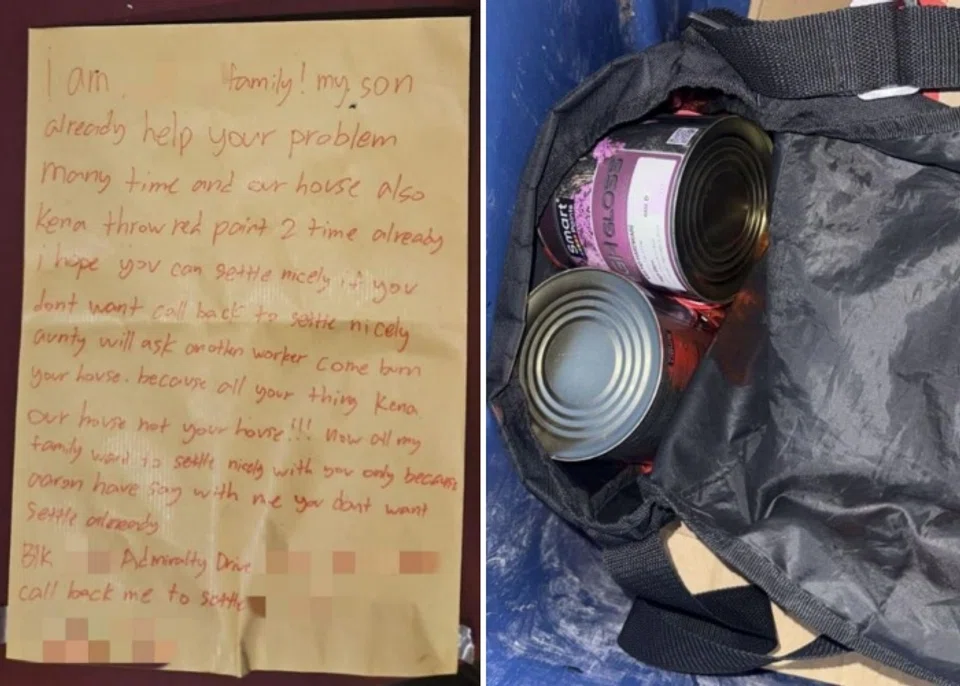 I am family! my son
already help your problem
many time and our house also
Kena throw red paint 2 time already
i hope you can settle nicely if you
dont want call back to settle nicely
aunty will ask another worker come burn
your house. because all your thing Kena
our house not your house!!! Now all my
family want to settle nicely with you only because
aaron have say with me you dont want
settle already
Blk Admiralty Drive
call back me to settle
smart
GLOSS